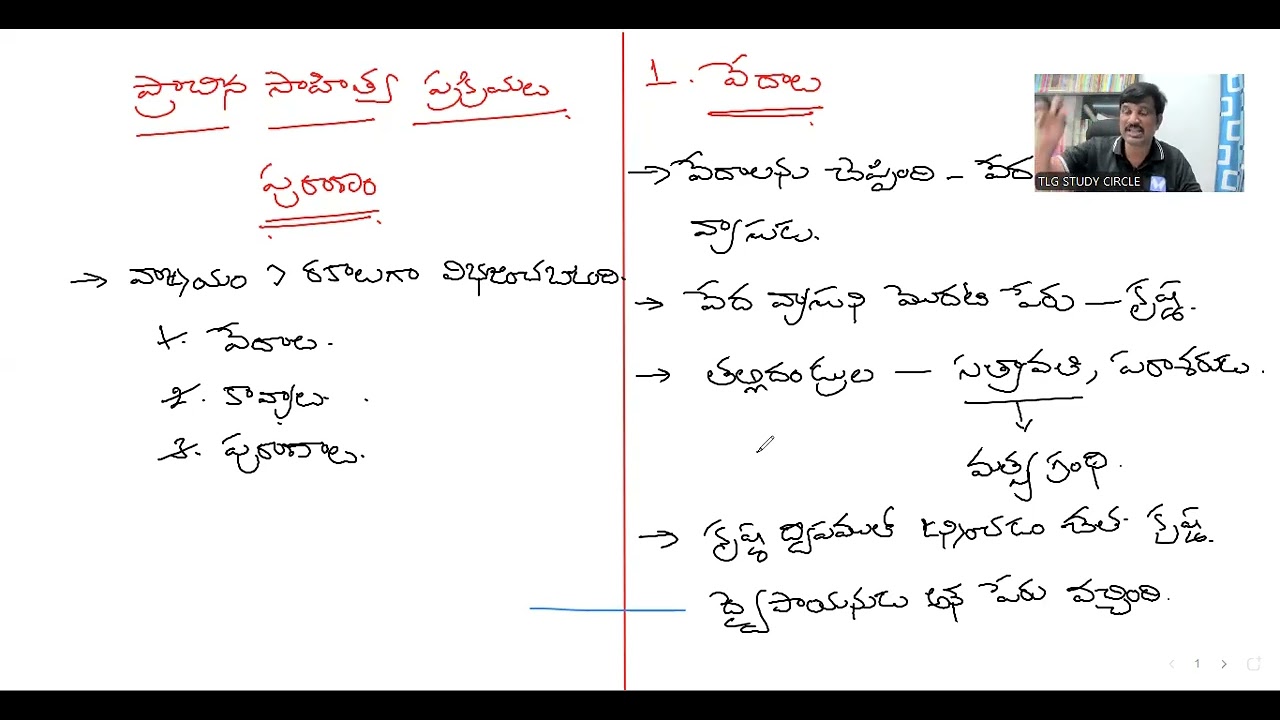 ప్రాచీన సాహిత్య ప్రక్రియలు
పురాణం
→ వాఙ్మయం 3 రకాలుగా విభజించబడింది.
1. వేదాలు.
2. కావ్యాలు.
3. పురాణాలు.
1. వేదాలు
→ వేదాలను చెప్పింది - వేద
వ్యాసుడు.
→ వేద వ్యాసుని మొదటి పేరు - కృష్ణ.
→ తల్లిదండ్రుల - సత్యవతి, పరాశరుడు.
మత్స్య గ్రంథి.
→ కృష్ణ ద్వీపములో జన్మించడం చేత కృష్ణ
ద్వైపాయనుడు అనే పేరు వచ్చింది.
TLG STUDY CIRCLE
1